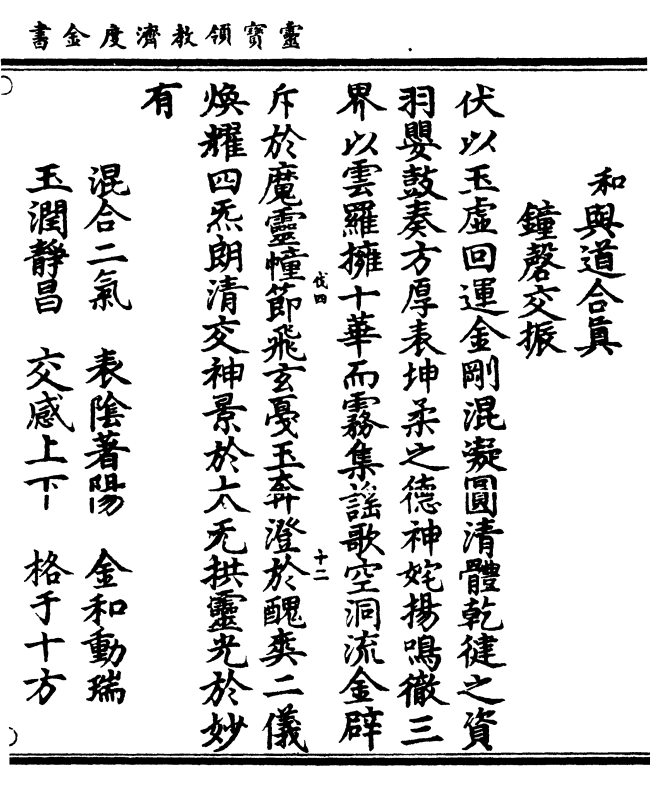 靈寶領教濟度金書
和與道合真
鐘磬交振
伏以玉虛回運金剛混凝圓清體乾健之資
羽嬰鼓奏方厚表坤柔之德神妃揚鳴徹三
界以雲羅擁十華而霧集謠歌空洞流金辟
斥於魔靈幢節飛玄憂玉奔澄於醜奕二儀
伐四
十二
煥耀四炁朗清交神景於大无拱靈光於妙
有
混合二氣 表陰著陽 金和動瑞
玉潤靜昌 交感上下 格于十方